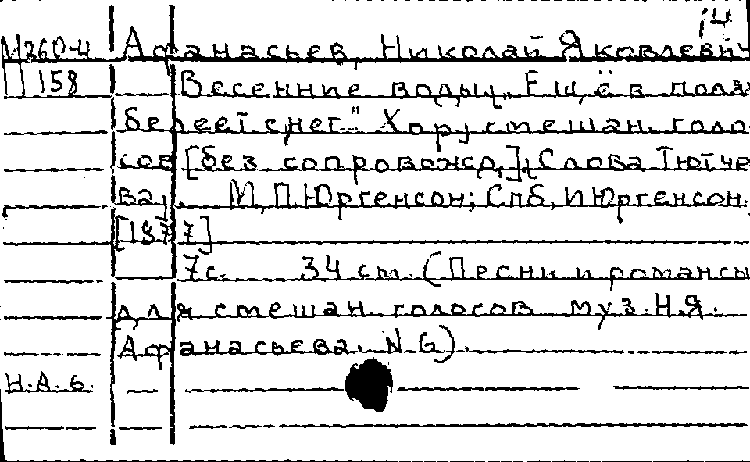 14
М260-4 Афанасьев, Николай Яковлевич
П 158 Весенние воды „Ещё в полях
белеет снег." Хор смешан. голо-
сов [без сопровожд.]. Слова Тютче-
ва.. М, П. Юргенсон; Спб, И Юргенсон.
[1877]
7с. 34 cm. (Песни и романсы
для смешан. голосов муз. Н.Я.
Афанасьева. N 6).
Н.А.6.